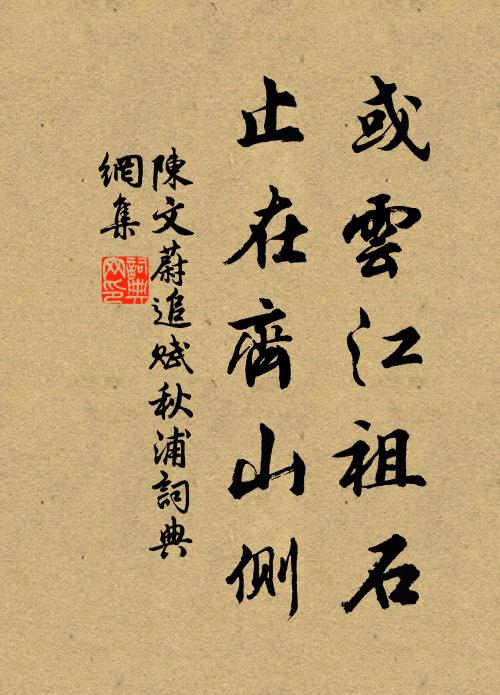 或雲江祖石
止在齊山側
陳文蔚追賦秋浦詞典
網集
詞典網印